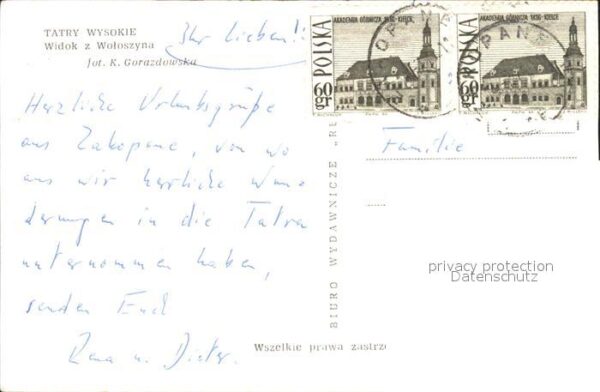 TATRY WYSOKIE
Widok z Wołoszyna
fot. K. Gorazdowska
Ihr Lieben!
Herzliche Urlaubsgrüße
aus Zakopane, von wo
aus wir herrliche Wan-
derungen in die Tatra
unternommen haben,
senden Euch
Rena u. Dieter.
POLSKA
60 gr
AKADEMIA GÓRNICZA 1816 · KIELCE
POLSKA
60 gr
AKADEMIA GÓRNICZA 1816 · KIELCE
Familie
BIURO WYDAWNICZE „R
privacy protection
Datenschutz
Wszelkie prawa zastrz